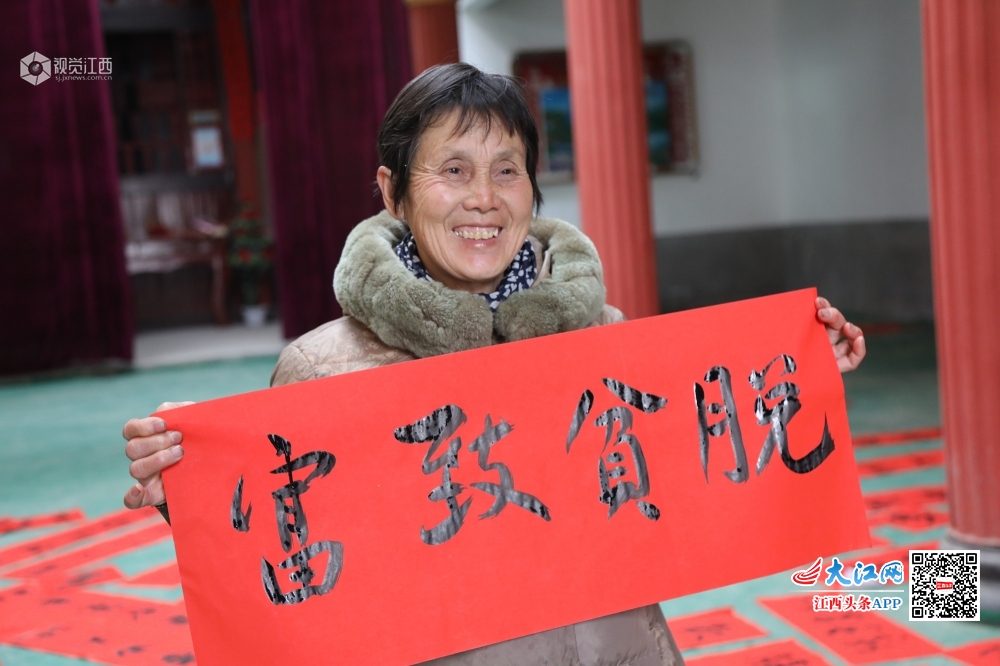 视觉江西
sj.jxnews.com.cn
脱贫致富
大江网
江西头条APP